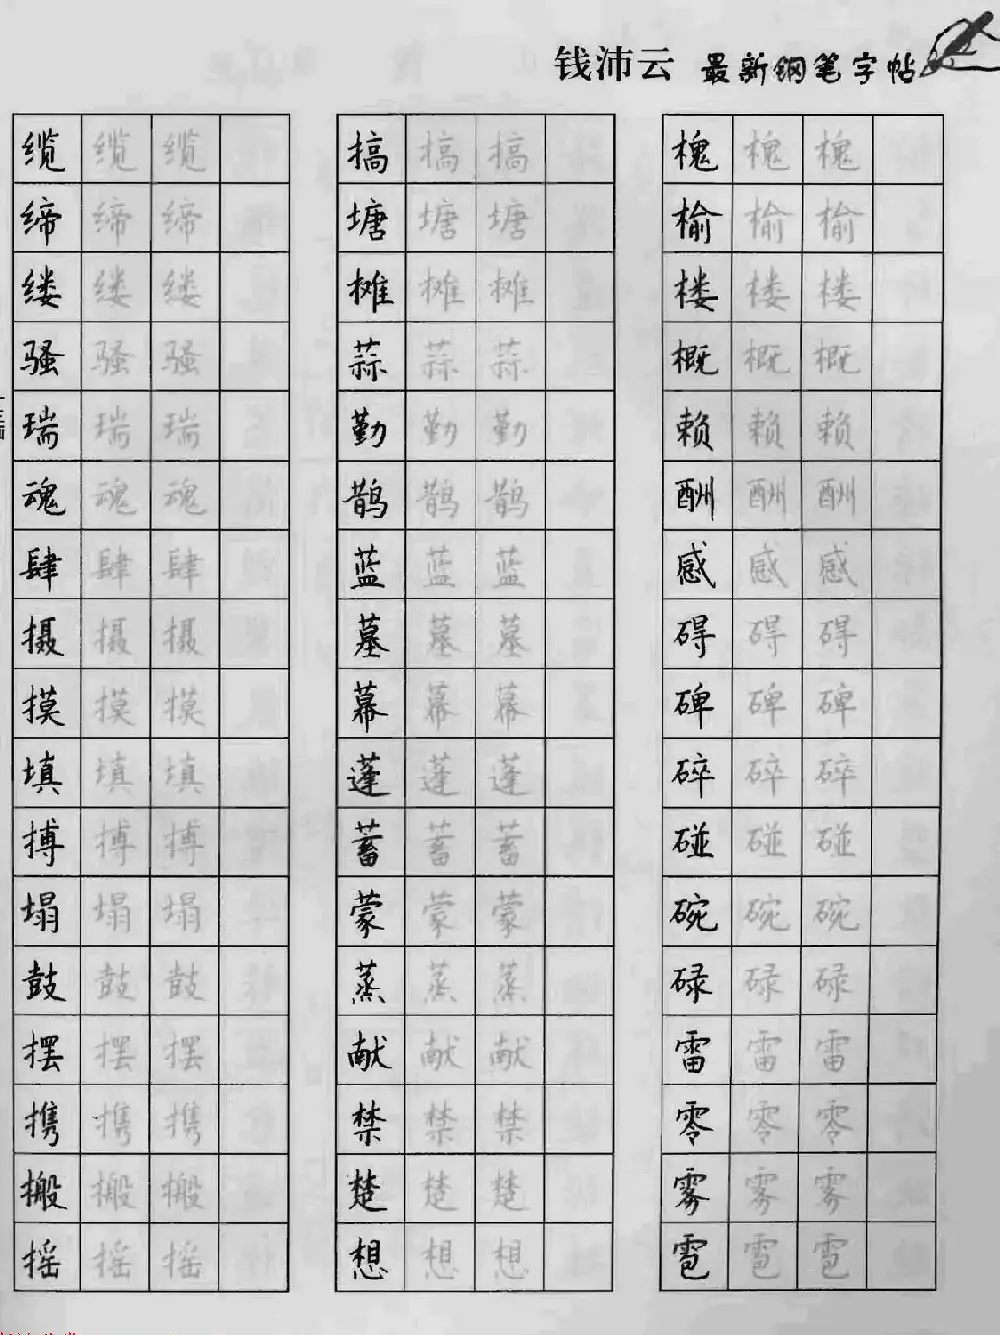 钱沛云 最新钢笔字帖
缆 缆 缆 搞 搞 搞 槐 槐 槐
缔 缔 缔 塘 塘 塘 榆 榆 榆
缕 缕 缕 摊 摊 摊 楼 楼 楼
骚 骚 骚 蒜 蒜 蒜 概 概 概
瑞 瑞 瑞 勤 勤 勤 赖 赖 赖
魂 魂 魂 鹊 鹊 鹊 酬 酬 酬
肆 肆 肆 蓝 蓝 蓝 感 感 感
摄 摄 摄 墓 墓 墓 碍 碍 碍
摸 摸 摸 幕 幕 幕 碑 碑 碑
填 填 填 蓬 蓬 蓬 碎 碎 碎
搏 搏 搏 蓄 蓄 蓄 碰 碰 碰
塌 塌 塌 蒙 蒙 蒙 碗 碗 碗
鼓 鼓 鼓 蒸 蒸 蒸 碌 碌 碌
摆 摆 摆 献 献 献 雷 雷 雷
携 携 携 禁 禁 禁 零 零 零
搬 搬 搬 楚 楚 楚 雾 雾 雾
摇 摇 摇 想 想 想 雹 雹 雹